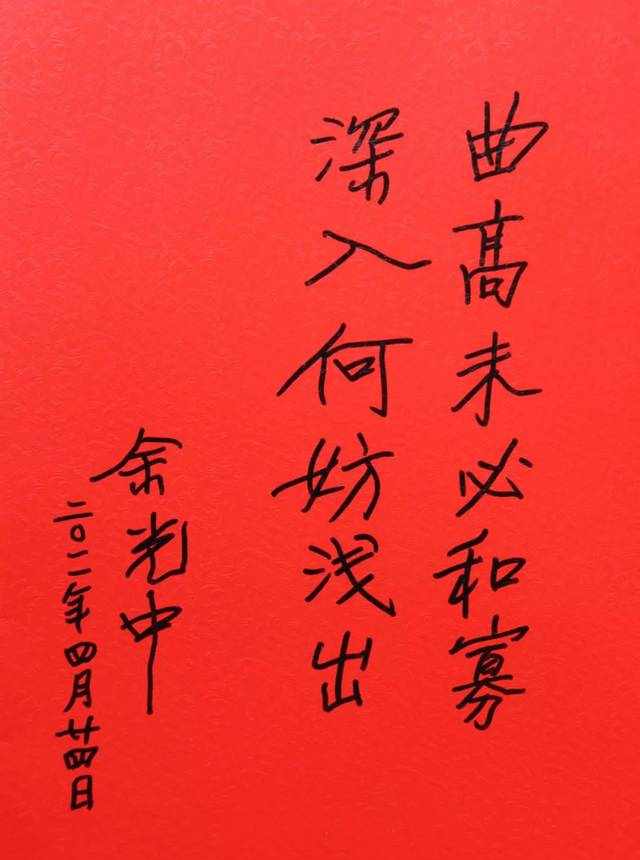 曲高未必和寡
深入何妨浅出
余光中
二〇一一年四月廿四日